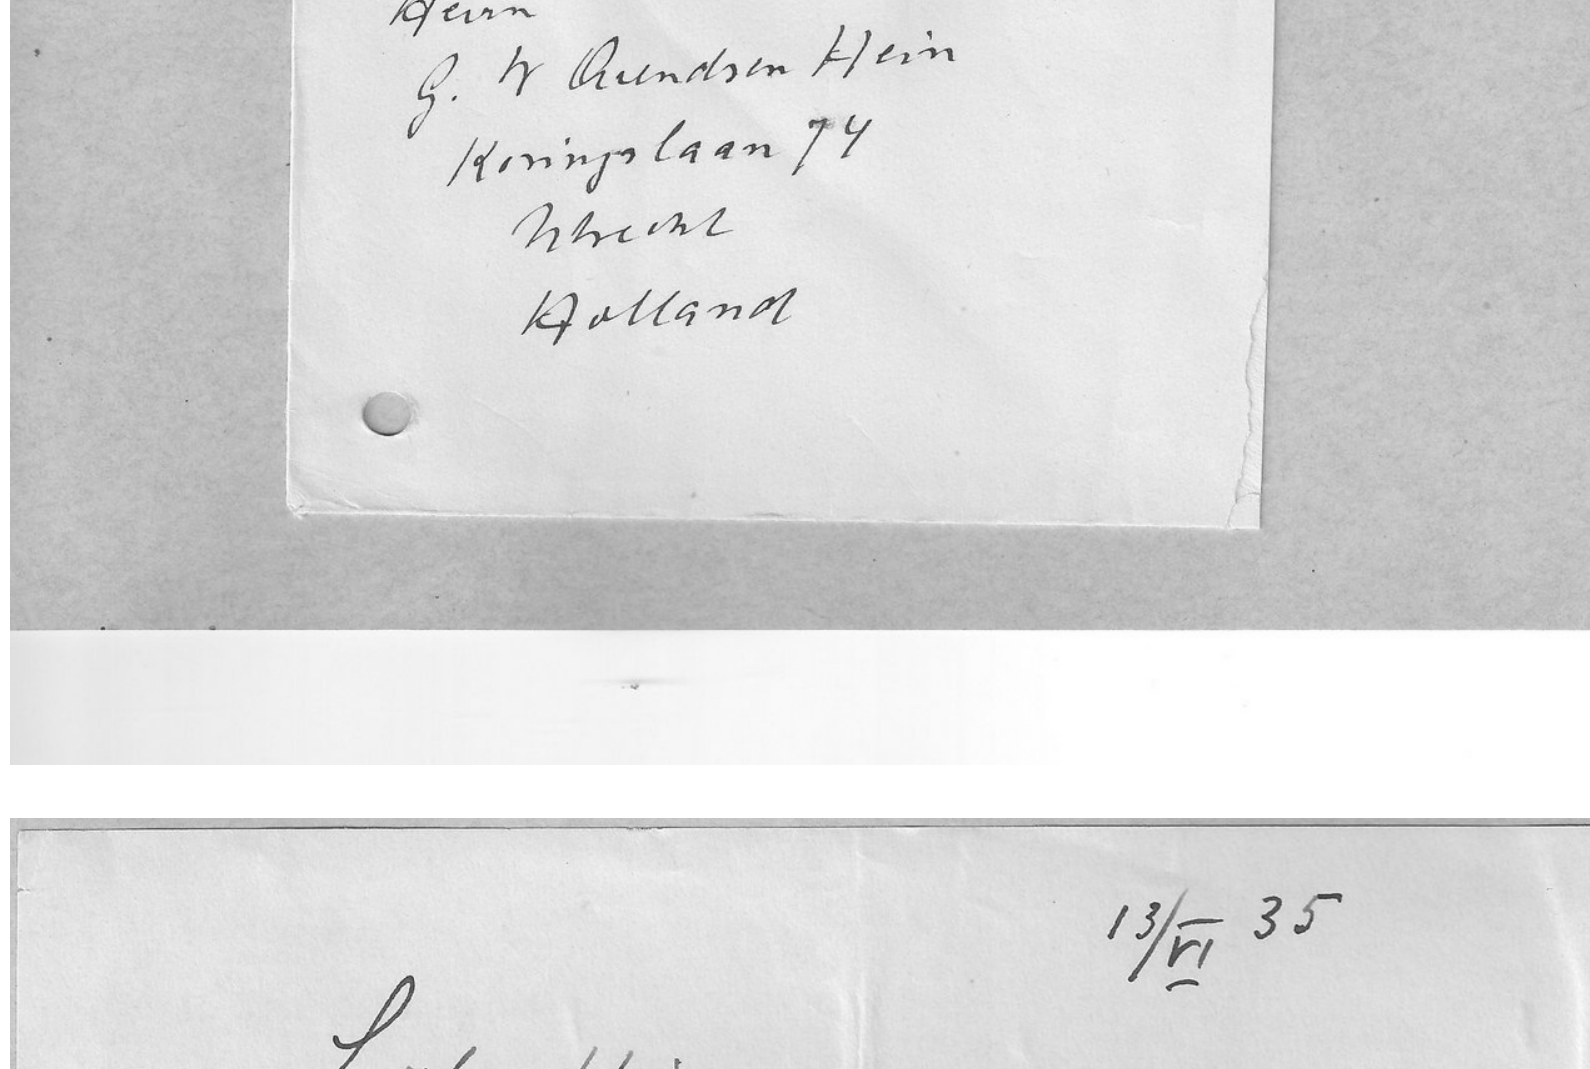 Herrn
G. W Arendsen Hein
Koningslaan 74
Utrecht
Holland
13/VI 35